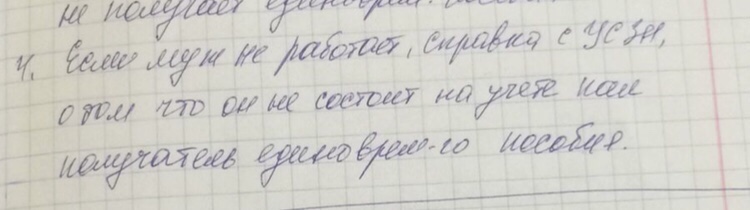 не получает единоврем.
4. Если муж не работает, справка с УСЗН,
о том что он не состоит на учете как
получатель единоврем-го пособия.